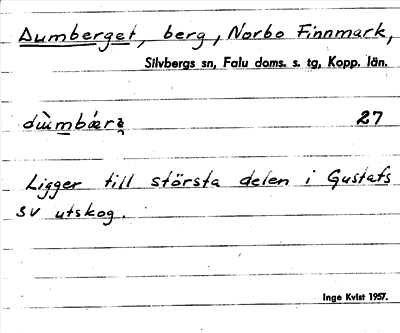 Dumberget, berg, Norbo Finnmark,
Silvbergs sn, Falu doms. s. tg, Kopp. län.
27
Ligger till största delen i Gustafs
SV utskog.
Inge Kvist 1957.